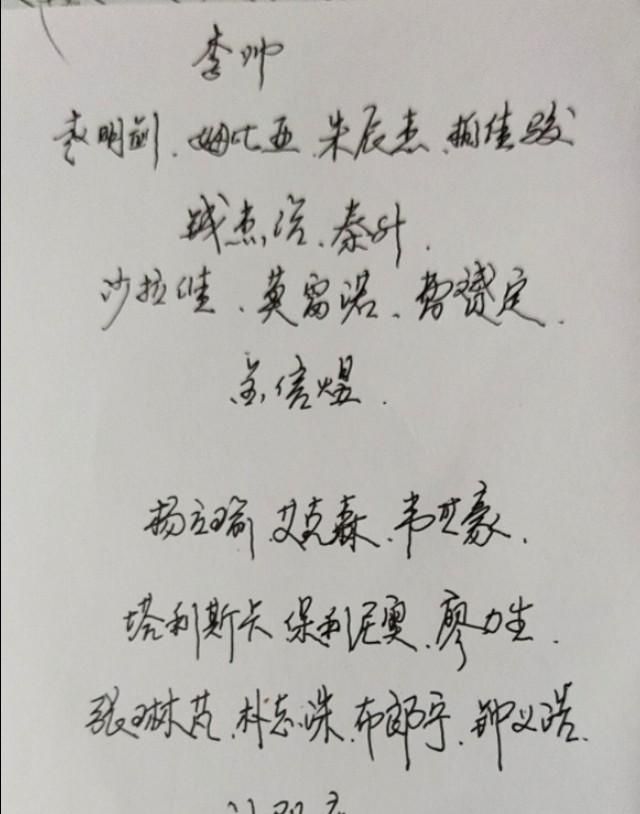 李帅
袁明剑、姆比亚、朱辰杰、柏佳骏
钱杰给、秦升、
沙拉维、莫雷诺、曹赟定、
金信煜、
杨立瑜、艾克森、韦世豪、
塔利斯卡、保利尼奥、廖力生、
张琳芃、朴志洙、布郎宁、邹义浩、